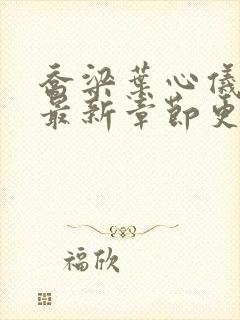 乔梁叶心仪
最新章节更
福欣